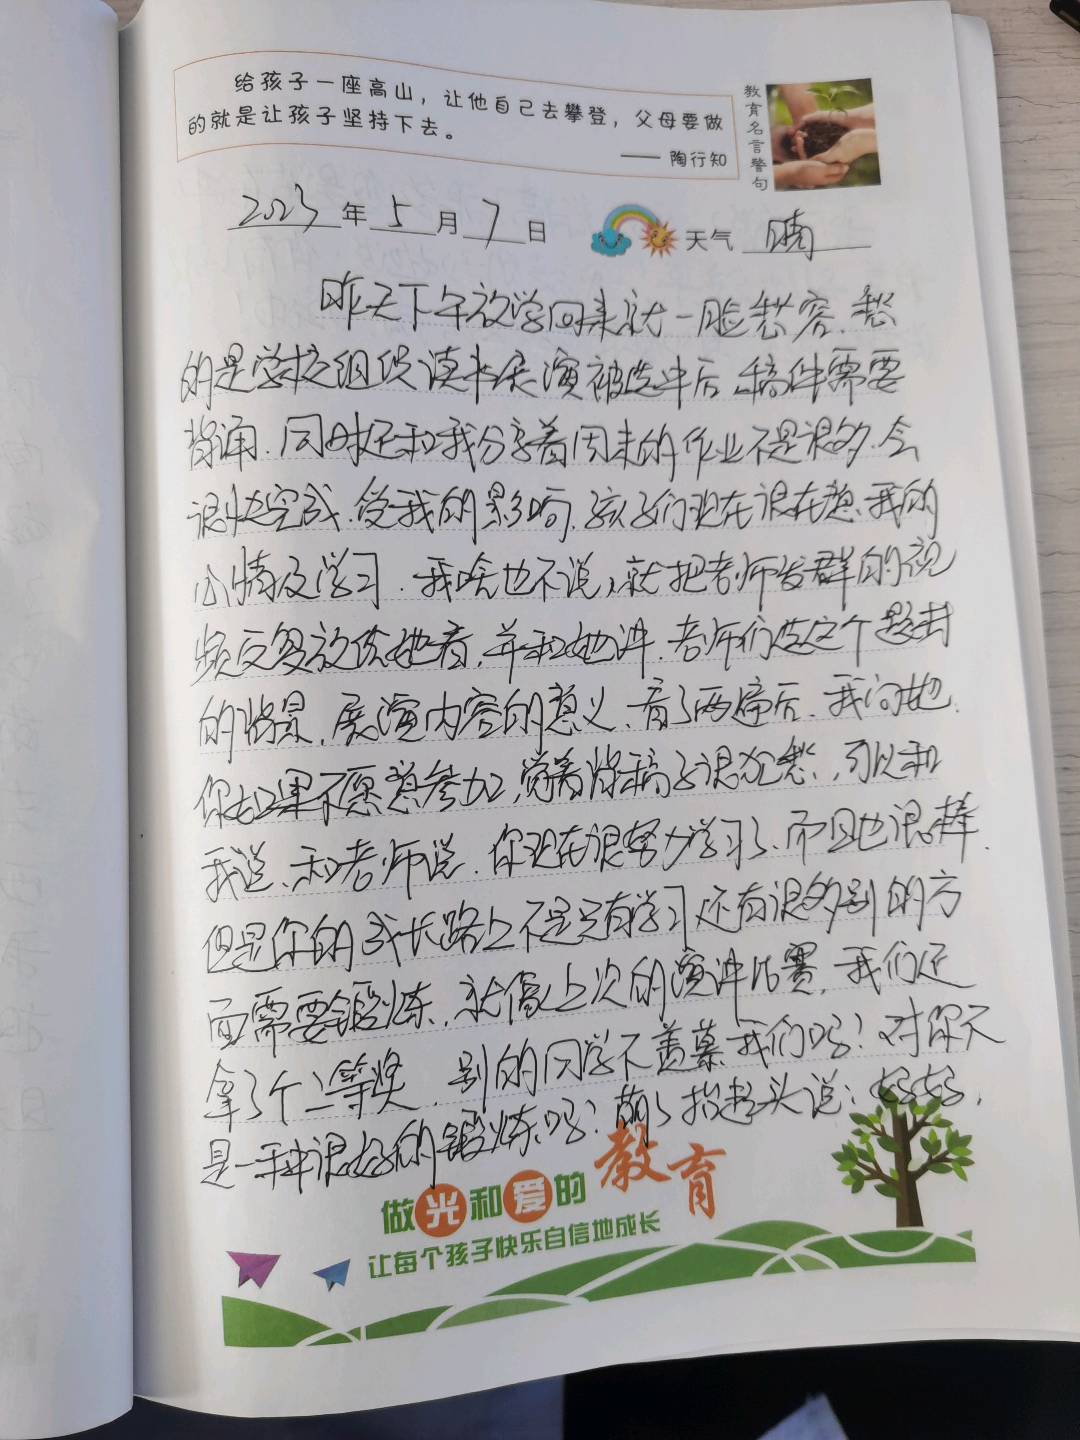 给孩子一座高山，让他自己去攀登，父母要做
的就是让孩子坚持下去。
—— 陶行知
教育名言警句
2023年5月7日 天气 晴
昨天下午放学回来就一脸愁容、愁
的是学校组织读书展演被选中后、稿件需要
背诵.同时还和我分享着周末的作业不是很多.会
很快完成.受我的影响.孩子们现在很在意、我的
心情及学习.我啥也不说、就把老师发群的视
频反复放给她看.并和她讲.老师们选这个题材
的背景、展演内容的意义、看了两遍后、我问她.
你如果不愿意参加、觉着背稿子很犯愁、可以和
我说、和老师说.你现在很努力学习了、而且也很棒.
但是你的成长路上不是只有学习还有很多别的方
面需要锻炼、就像上次的演讲比赛、我们还
拿了个二等奖.别的同学不羡慕我们吗？对你不
是一种很好的锻炼吗？萌萌抬起头说：好好，
做光和爱的教育
让每个孩子快乐自信地成长